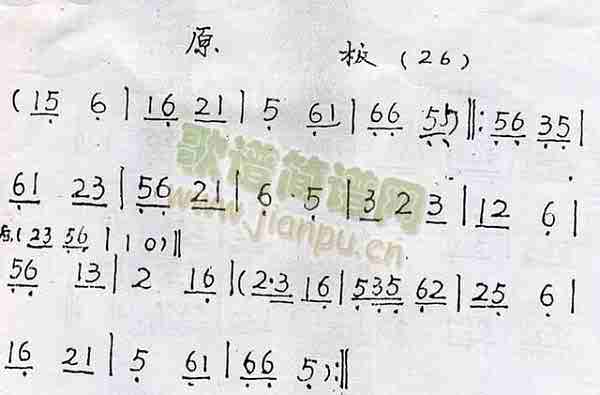 原 板 (26)
(15 6 | 16 21 | 5 61 | 66 55) ‖: 56 35 |
61 23 | 56 21 | 6 5 | 3 2 3 | 12 6 |
(23 56 | 1 0) ‖
56 13 | 2 16 | (2·3 16 | 535 62 | 25 6 |
16 21 | 5 61 | 66 5) :‖
歌谱简谱网
www.jianpu.cn